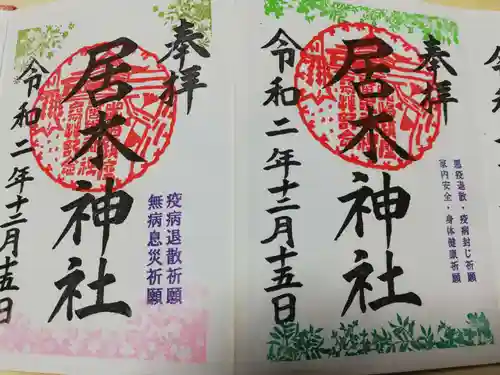 奉拝
居木神社
疫病退散祈願
無病息災祈願
令和二年十二月十五日
奉拝
居木神社
悪疫退散・疫病封じ祈願
家内安全・身体健康祈願
令和二年十二月十五日